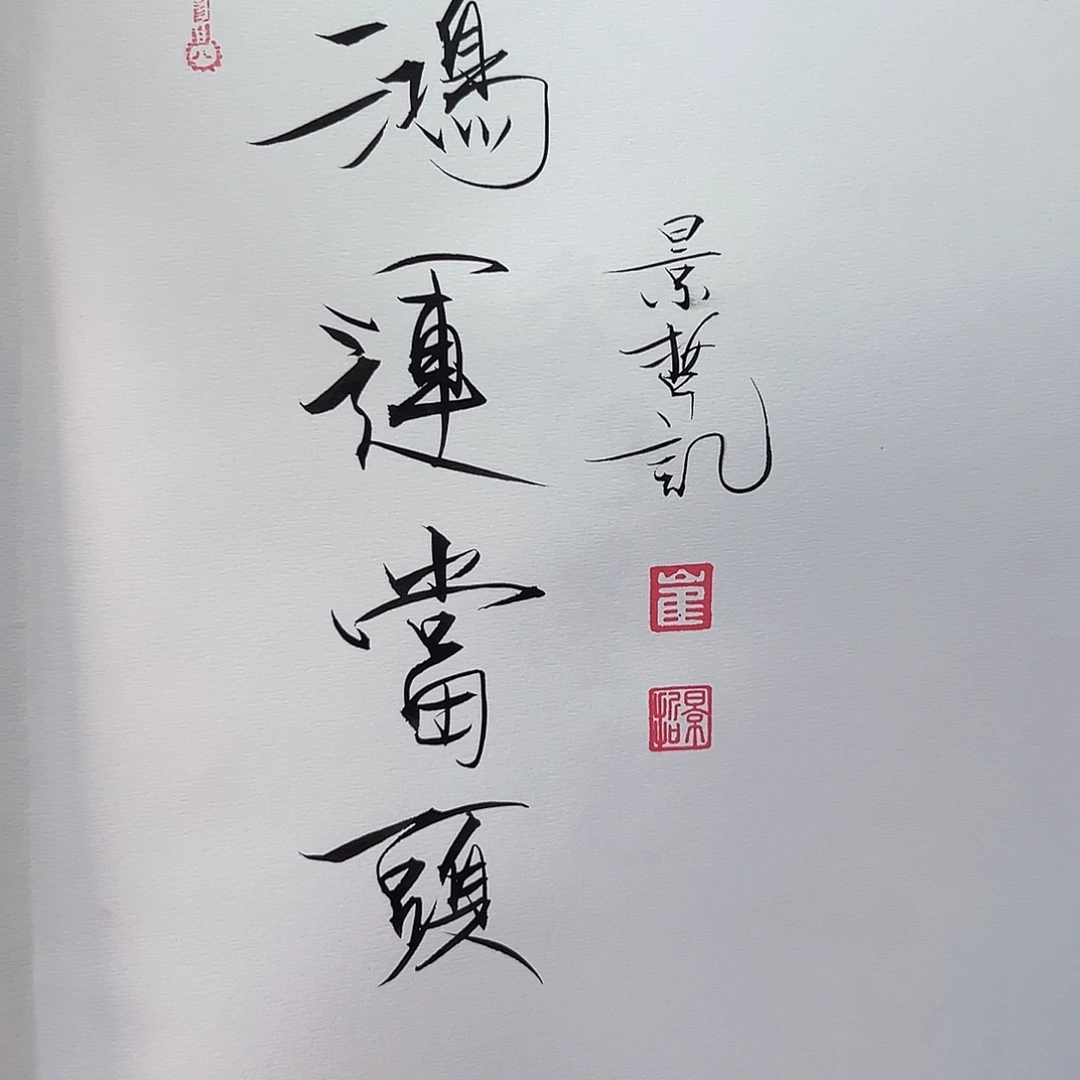 鴻運當頭
景哲記
崔
景哲